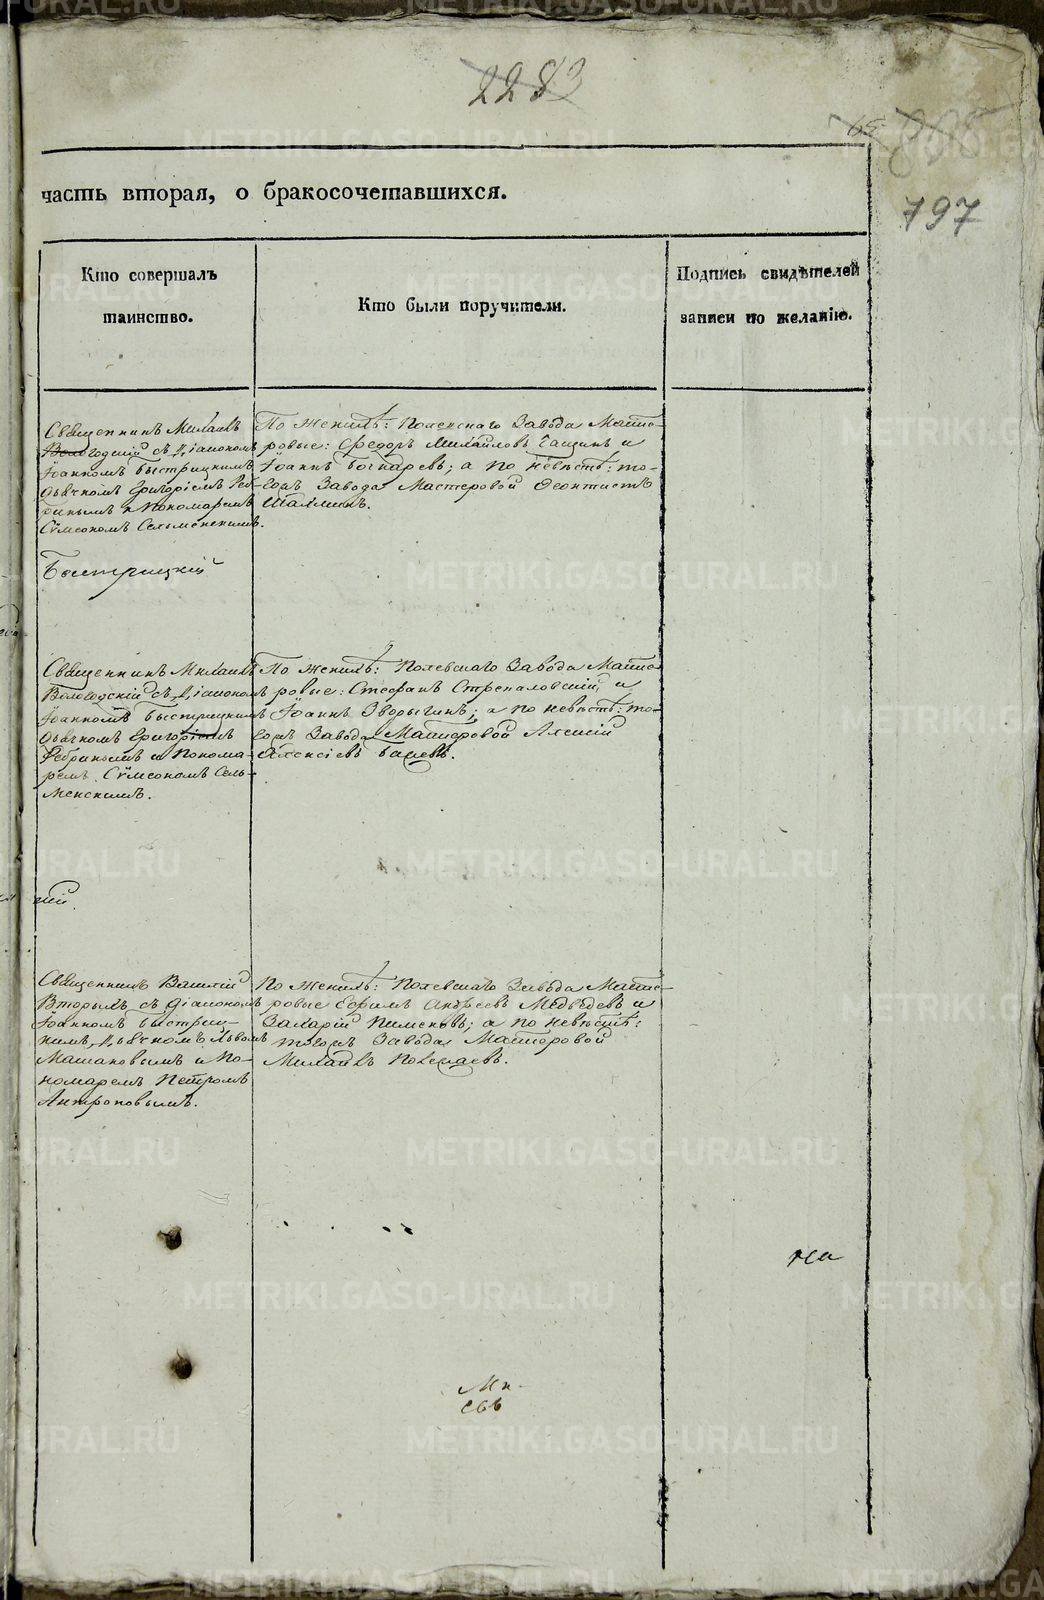 2283
65
797
часть вторая, о бракосочетавшихся.
Кто совершалъ
таинство.
Кто были поручители.
Подпись свидѣтелей
записи по желанію.
Священникъ Михаилъ
Вологодскій съ Діакономъ
Іоанномъ Быстрицкимъ
Дьячкомъ Григоріемъ Реб-
ринымъ и Пономаремъ
Сѵмеономъ Сельменскимъ.
По женихѣ: Полевскаго Завода Масте-
ровые: Ѳедоръ Михайловъ Чащинъ и
Іоаннъ Бочкаревъ; а по невѣстѣ: то-
гожъ Завода Мастеровой Леонтій
Быстрицкій
Священникъ Михаилъ
Вологодскій съ Діакономъ
Іоанномъ Быстрицкимъ
Дьячкомъ Григоріемъ
Ребринымъ и Понома-
ремъ Сѵмеономъ Сель-
менскимъ.
По женихѣ: Полевскаго Завода Масте-
ровые: Стефанъ Стрекаловскій и
Іоаннъ Зворыгинъ; а по невѣстѣ: то-
гожъ Завода Мастеровой Алексій
Алексіевъ
кій.
Священникъ Василій
Вторыхъ съ Діакономъ
Іоанномъ Быстриц-
кимъ, Дьячкомъ Львомъ
Машановымъ и По-
номаремъ Петромъ
Антроповымъ.
По женихѣ: Полевскаго Завода Масте-
ровые Ефимъ Андреевъ Медвѣдевъ и
Захарій Пименовъ; а по невѣстѣ:
тогожъ Завода Мастеровой
Михаилъ
Ми
METRIKI.GASO-URAL.RU